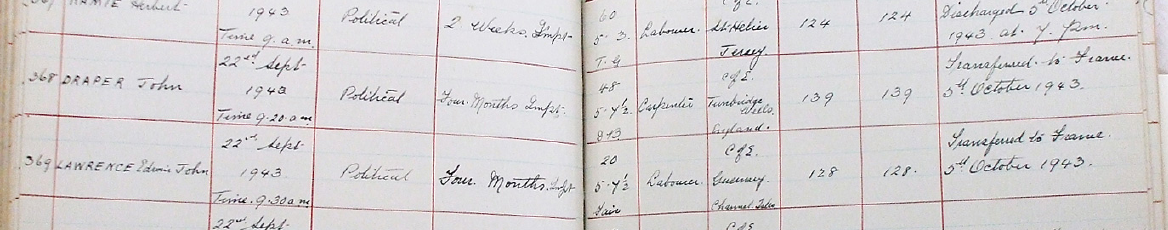 Herbert 1943 Political 2 Weeks Impt 60 Labourer St Helier 124 124 Discharged 5th October
Time 9. a.m. 5-3. Jersey 1943 at 7. p.m.
22nd Sept T.G C of E.
368 DRAPER John 1943 Political Four Months Impt. 48 Carpenter Tunbridge Wells. 139 139 Transferred to France.
Time 9-20 a.m 5-4½ England. 5th October 1943.
22nd Sept C of E.
369 LAWRENCE Edwin John 1943 Political Four Months Impt 20 Labourer Guernsey 128 128. Transferred to France.
Time 9.30 a.m 5-4½ Channel Isles 5th October 1943.
22nd Sept. Fair C of E.